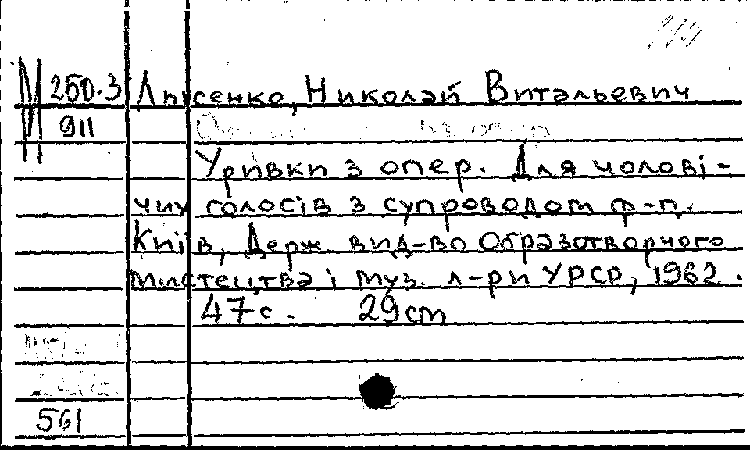 М 250.3 Лисенко, Николай Витальевич
911
Уривки з опер. Для чолові-
чих голосів з супроводом ф-п.
Київ, Держ. вид-во Образотворчого
мистецтва і муз. л-ри УРСР, 1962.
47 с. 29cm
561